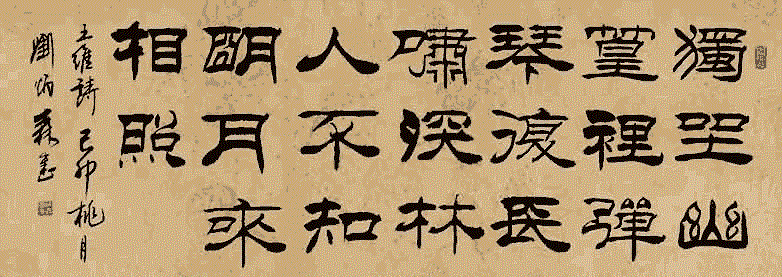 獨坐幽
篁裡彈
琴復長
嘯深林
人不知
明月來
相照
王維詩 己卯桃月
劉炳森書